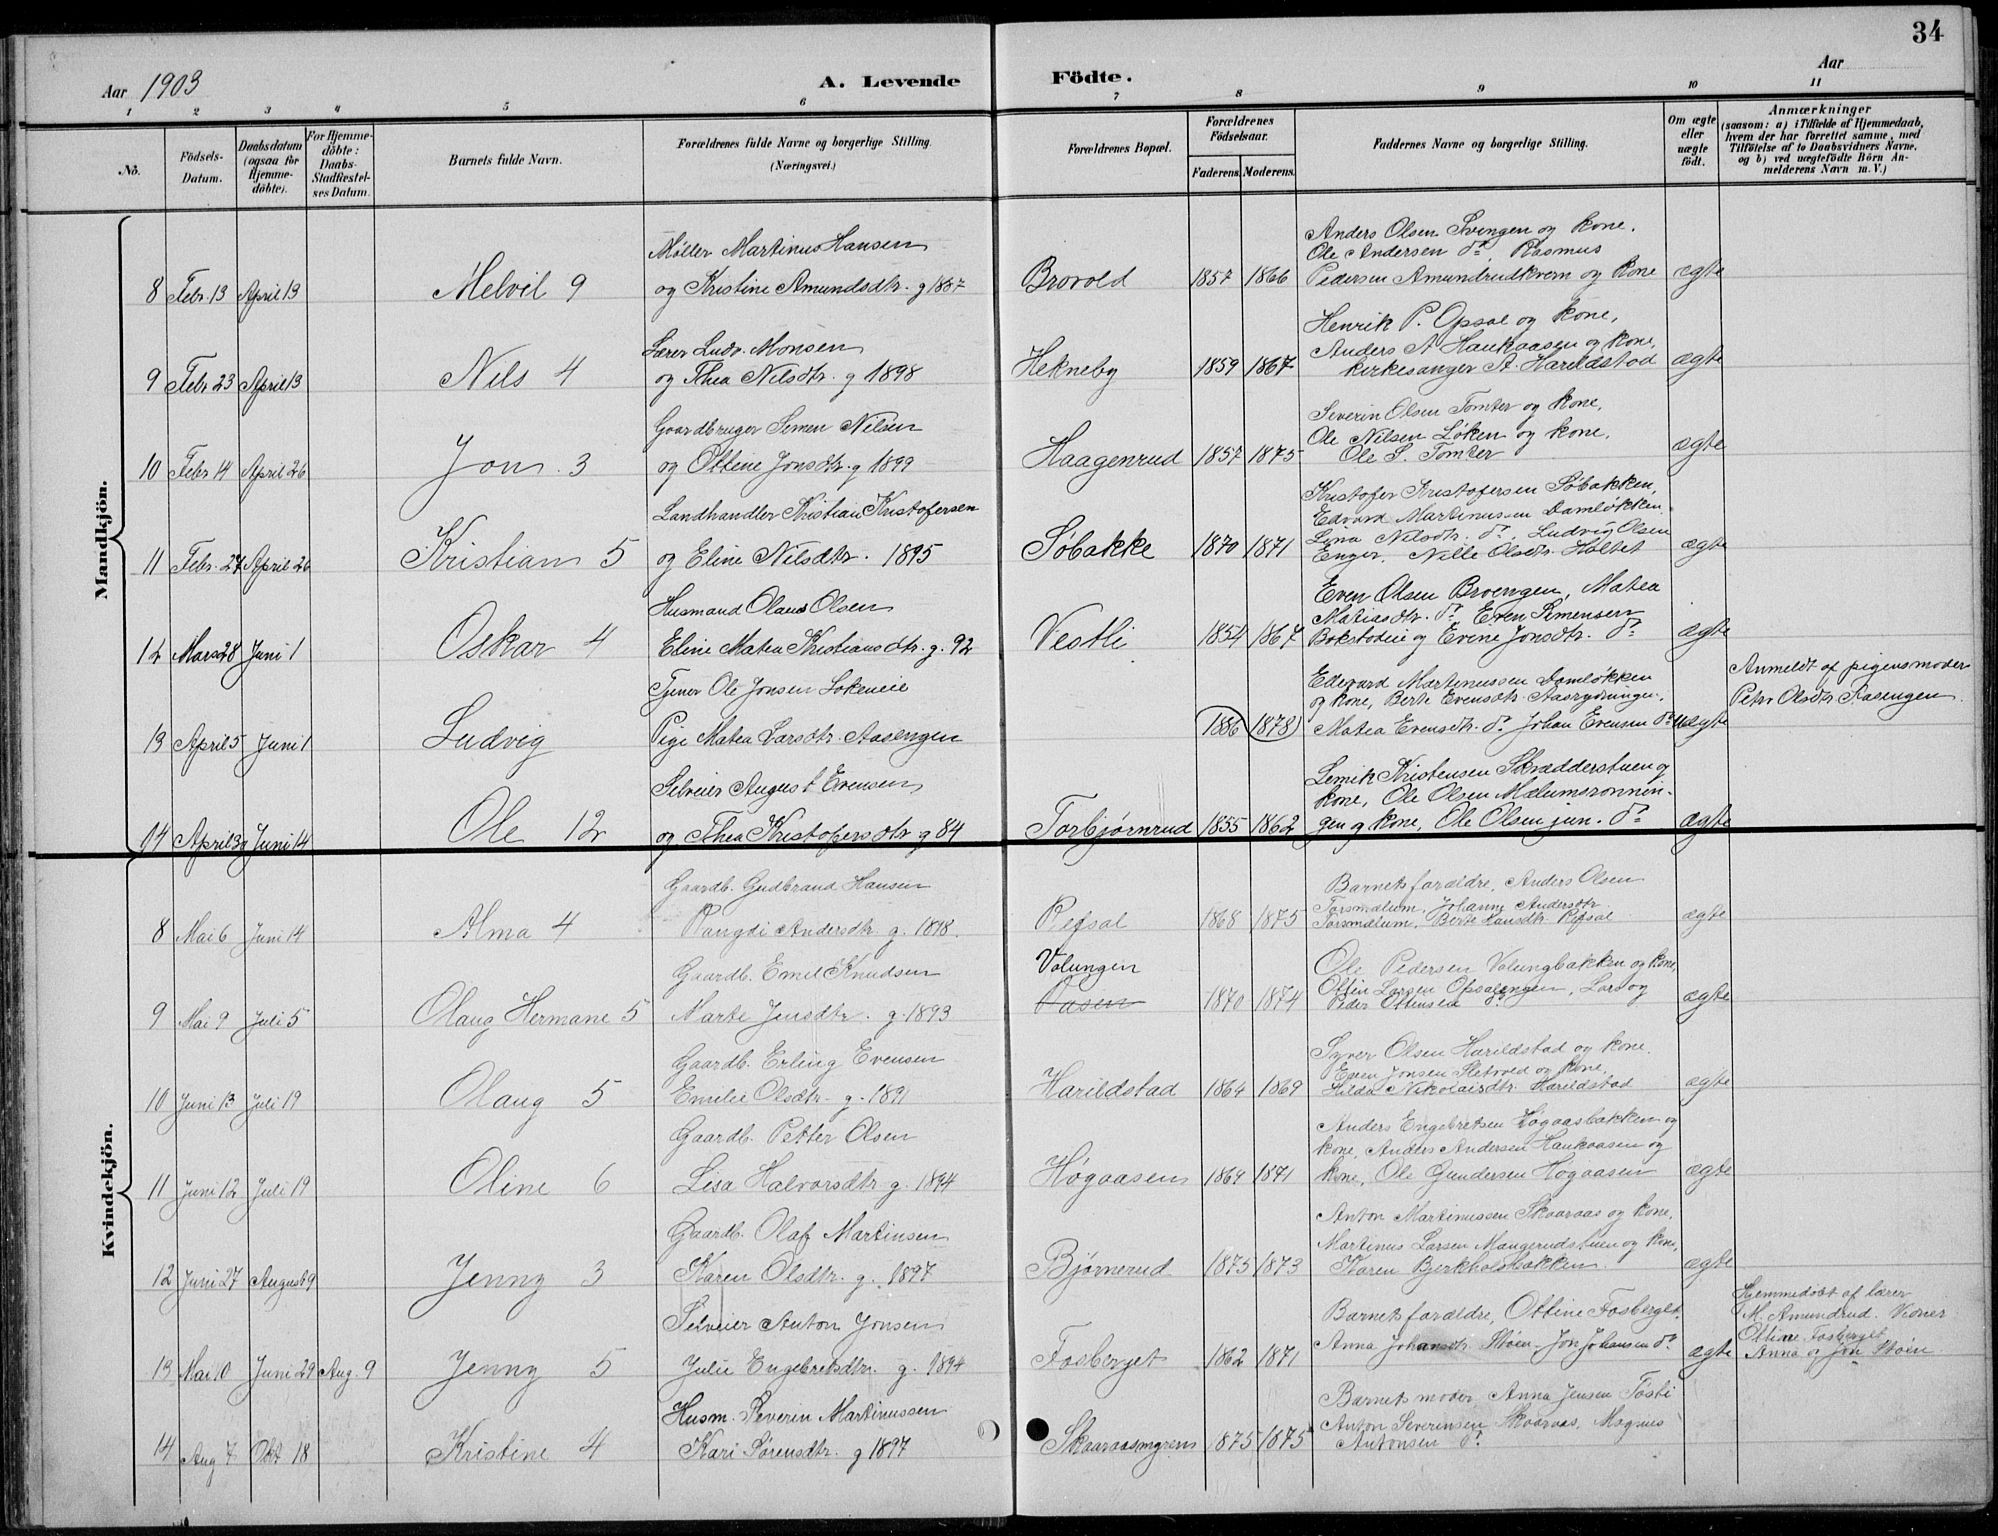 34
Aar 1903
A. Levende Födte.
Aar
1 2 3 4 5 6 7 8 9 10 11
No.
Födsels-Datum.
Daabsdatum (ogsaa for Hjemmedöbte).
For Hjemmedöbte: Daabs-Stadfæstelses Datum.
Barnets fulde Navn.
Forældrenes fulde Navne og borgerlige Stilling.
(Næringsvei.)
Forældrenes Bopæl.
Forældrenes Födselsaar.
Faderens. Moderens.
Faddernes Navne og borgerlige Stilling.
Om ægte eller uægte födt.
Anmærkninger
(saasom: a) i Tilfælde af Hjemmedaab,
hvem der har forrettet samme, med
Tilföielse af to Daabsvidners Navne,
og b) ved uægtefödte Börn Anmelderens Navn m. V.)
Mandkjön.
Møller Martinus Hansen
Anders Olsen Svingen og kone.
Ole Andersen do. Rasmus
8 Febr. 13 April 13 Melvil 9 og Kristine Amundsdtr. g 1887 Brovold 1857 1866 Pedersen Amundrudkvern og kone ægte
Henrik P. Opsal og kone,
Lærer Ludv. Monsen
Anders A Haukaasen og kone,
9 Febr 23 April 13 Nils 4 og Thea Nilsdtr. g 1898 Hekneby 1859 1867 kirkesanger A. Harildstad ægte
Gaardbruger Simen Nilsen
Severin Olsen Tomter og kone,
Ole Nilsen Løken og kone.
10 Febr 14 April 26 Jon 3 og Ottine Jonsdtr. g 1899 Haagenrud 1857 1875 Ole S. Tomter ægte
Landhandler Kristian Kristofersen
Kristofer Kristofersen Søbakken,
Edvard Martinussen Damløkken.
Lina Nilsdtr. do. Ludvig Olsen
11 Febr. 27 April 26 Kristian 5 og Eline Nilsdtr. 1895 Søbakke 1870 1871 Enger. Nille Olsdtr. Holtet ægte
Husmand Olaus Olsen
Even Olsen Broengen, Matea
Matiasdtr. do. Even Simensen
12 Mars 28 Juni 1 Oskar 4 Eline Matea Kristiansdtr. g. 92 Vestli 1854 1867 Bakstadeie og Evine Jonsdtr. do. ægte
Tjener Ole Jonsen Løkeneie
Edevard Martinussen Damløkken
og kone, Berte Evensdtr.
Anmeldt af pigens moder
13 April 5 Juni 1 Ludvig Pige Matea Larsdtr. Aasengen 1886 1878 Matea Evensdtr. do. Johan Evensen do. uægte
Olsdtr. Aasengen
Selveier August Evensen
Lemik Kristensen Skrædderstuen og
kone, Ole Olsen Mælumsrønnin-
14 April 30 Juni 14 Ole 12 og Thea Kristofersdtr g 84 Torbjørnrud 1855 1862 gen og kone, Ole Olsen jun. do. ægte
Kvindekjön.
Gaardb. Gudbrand Hansen
Barnets forældre, Anders Olsen
Torsmælum, Johanne Andersdtr.
8 Mai 6 Juni 14 Alma 4 Rangdi Andersdtr g. 1898. Refsal 1868 1875 Torsmælum. Berte Hansdtr. Refsal ægte
Gaardb. Emil Knudsen
Volungen
Ole Pedersen Volungbakken og kone,
Ottin Larsen Opsalengen, Lars og
9 Mai 9 Juli 5 Olaug Hermane 5 Marte Jensdtr. g. 1893 Aasen 1870 1874 Peder Ottinsen do. ægte
Gaardb. Erling Evensen
Syver Olsen Harildstad og kone.
Even Jonsen Sletvold og kone,
10 Juni 13 Juli 19 Olaug 5 Emilie Olsdtr. g. 1891 Harildstad 1864 1869 Hilda Nikolaisdtr. Harildstad ægte
Gaardb. Petter Olsen
Anders Engebretsen Høgaasbakken og
kone, Anders Andersen Haukaasen og
11 Juni 12 Juli 19 Oline 6 Lisa Halvorsdtr g. 1894 Høgaasen 1864 1871 kone, Ole Gundersen Høgaasen ægte
Gaardb. Olaf Martinsen
Anton Martinussen Skaaraas og kone,
Martinus Larsen Mangerudstuen og kone,
12 Juni 27 August 9 Jenny 3 Karen Olsdtr. g. 1897 Bjørnerud 1875 1873 Karen Bjerkholsbakken. ægte
Selveier Anton Jonsen
Barnets forældre, Ottine Fosberget.
Hemmedøbt af lærer
M. Amundrud. Vidner
Ottine Fosberget
13 Mai 10 Juni 29 Aug. 9 Jenny 5 Julie Engebretsdtr. g. 1894 Fosberget 1862 1871 Anna Johansdtr. Moen. Jon Johansen do. ægte
Anna og Jon Moen
Husm. Severin Martinussen
Barnets moder Anna Jensen Fosbi
Anton Severinsen Skaaraas, Magnus
14 Aug 7 Okt 18 Kristine 4 Kari Sørensdtr. g 1897 Skaaraasmyren 1875 1875 Antonsen do. ægte